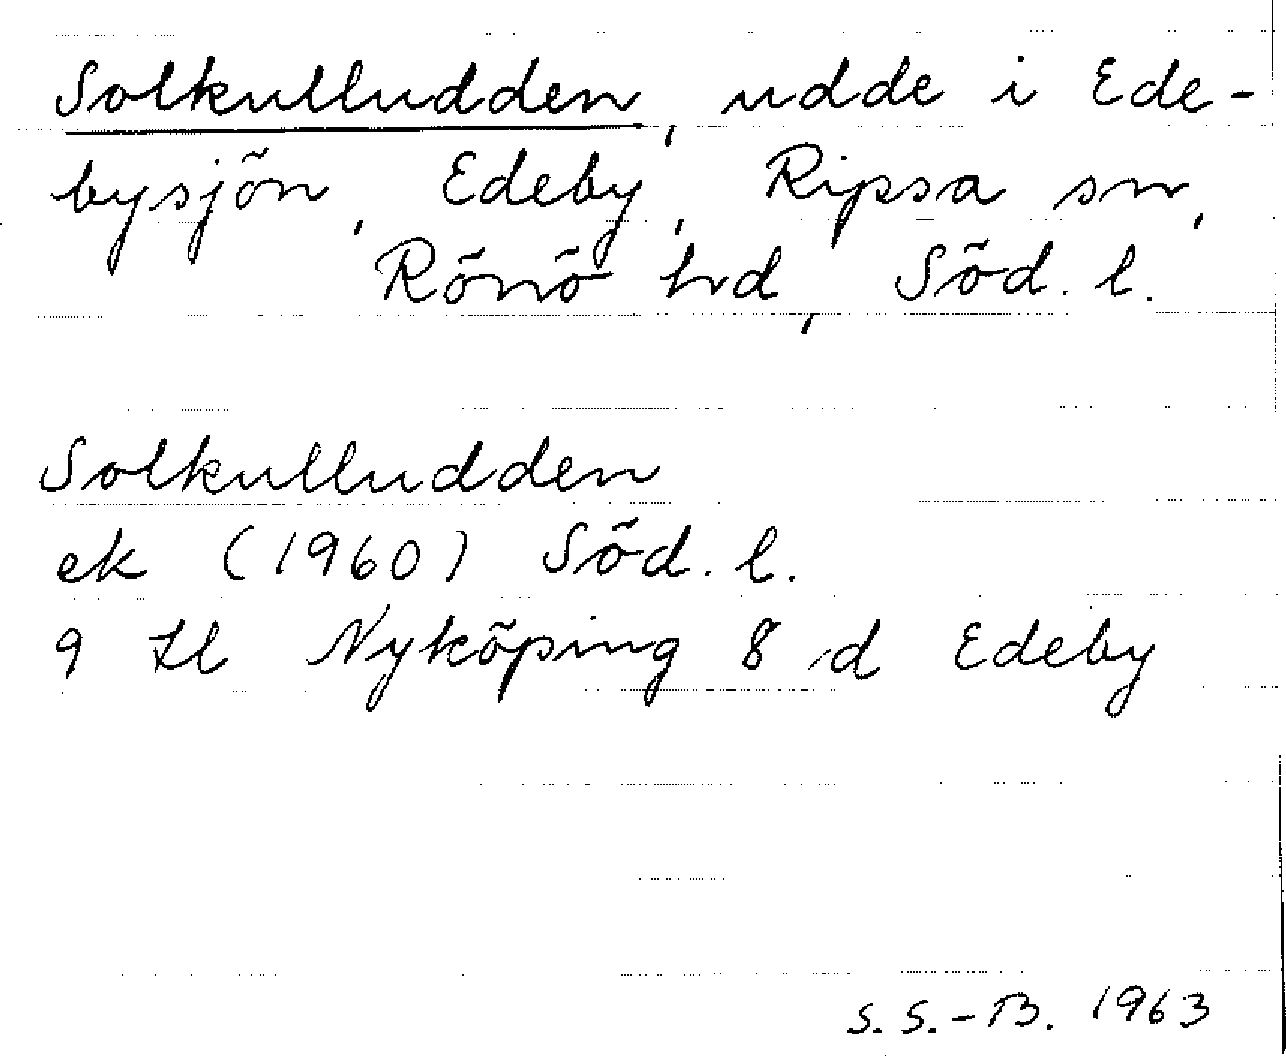 Solkulludden, udde i Ede-
bysjön, Edeby, Ripsa sn,
Rönö hd, Söd. l.
Solkulludden
ek (1960) Söd. l.
9 H Nyköping 8 d Edeby
S. S.-B. 1963